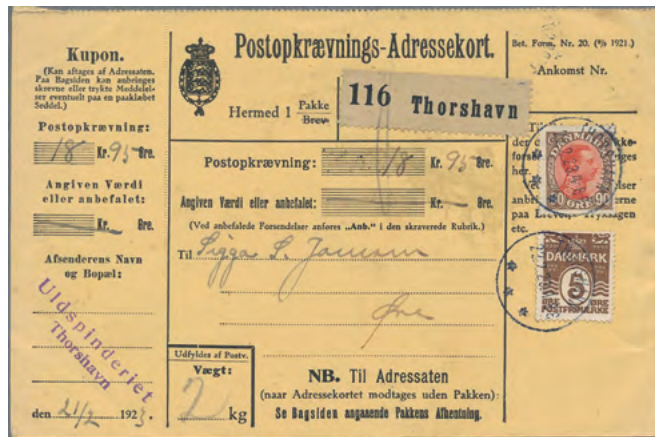 Kupon.
(Kan aftages af Adressaten.
Paa Bagsiden kan anbringes
skrevne eller trykte Meddelel-
ser eventuelt paa en paaklæbet
Seddel.)
Postopkrævning:
18 Kr. 95 Øre.
Angiven Værdi
eller anbefalet:
Kr. Øre.
Afsenderens Navn
og Bopæl:
Uldspinderiet
Thorshavn
den 21/2 1923
Postopkrævnings-Adressekort.
Hermed 1 Pakke
Brev
116 Thorshavn
Postopkrævning: 18 Kr. 95 Øre.
Angiven Værdi eller anbefalet: Kr. Øre.
(Ved anbefalede Forsendelser anføres „Anb." i den skraverede Rubrik.)
Til Sigga S.
Øre
Udfyldes af Postv.
Vægt:
2 kg
NB. Til Adressaten
(naar Adressekortet modtages uden Pakken):
Se Bagsiden angaaende Pakkens Afhentning.
Bet. Form. Nr. 20. (1921.)
Ankomst Nr.
her.
paa
etc.
DANMARK
90 ØRE 90
DANMARK
5
ØRE ØRE
POSTFRIMÆRKE